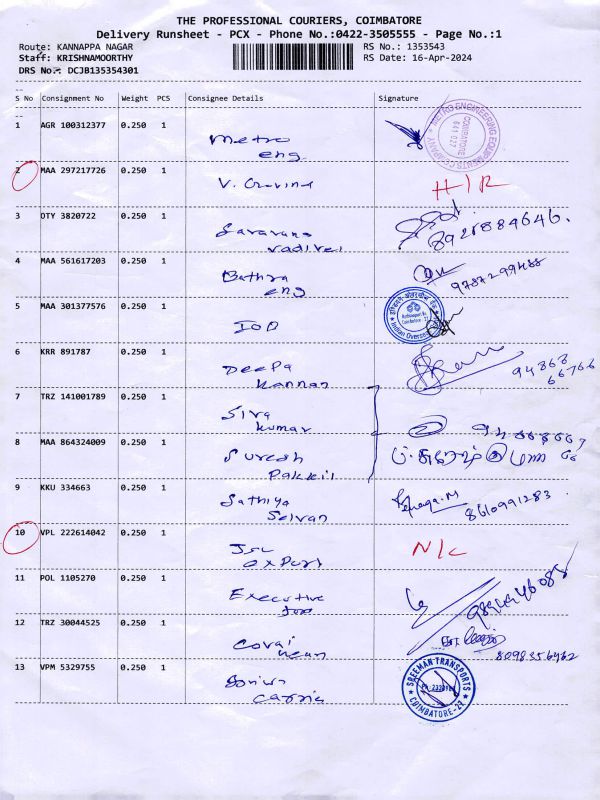 THE PROFESSIONAL COURIERS, COIMBATORE
Delivery Runsheet - PCX - Phone No.:0422-3505555 - Page No.:1
Route: KANNAPPA NAGAR
RS No.: 1353543
Staff: KRISHNAMOORTHY
RS Date: 16-Apr-2024
DRS No.: DCJB135354301
S No Consignment No Weight PCS Consignee Details Signature
1 AGR 100312377 0.250 1 Metro
eng
METRO ENGINEERING EQUIPMENTS COMPANY
COIMBATORE
641 027
2 MAA 297217726 0.250 1 V. H/R
3 OTY 3820722 0.250 1 Saravana
vadivel
8925884646.
4 MAA 561617203 0.250 1 Bathra
eng
9787299488
5 MAA 301377576 0.250 1 IOB
Indian Overseas
6 KRR 891787 0.250 1 Deepa
Kannan
94868
66766
7 TRZ 141001789 0.250 1 Siva
Kumar
8 MAA 864324009 0.250 1 Suresh
9 KKU 334663 0.250 1 Sathiya
Selvan
8610991283
10 VPL 222614042 0.250 1 N/C
11 POL 1105270 0.250 1 Executive
12 TRZ 30044525 0.250 1 Covai
8098356462
13 VPM 5329755 0.250 1
SREEMAN TRANSPORTS
COIMBATORE-27